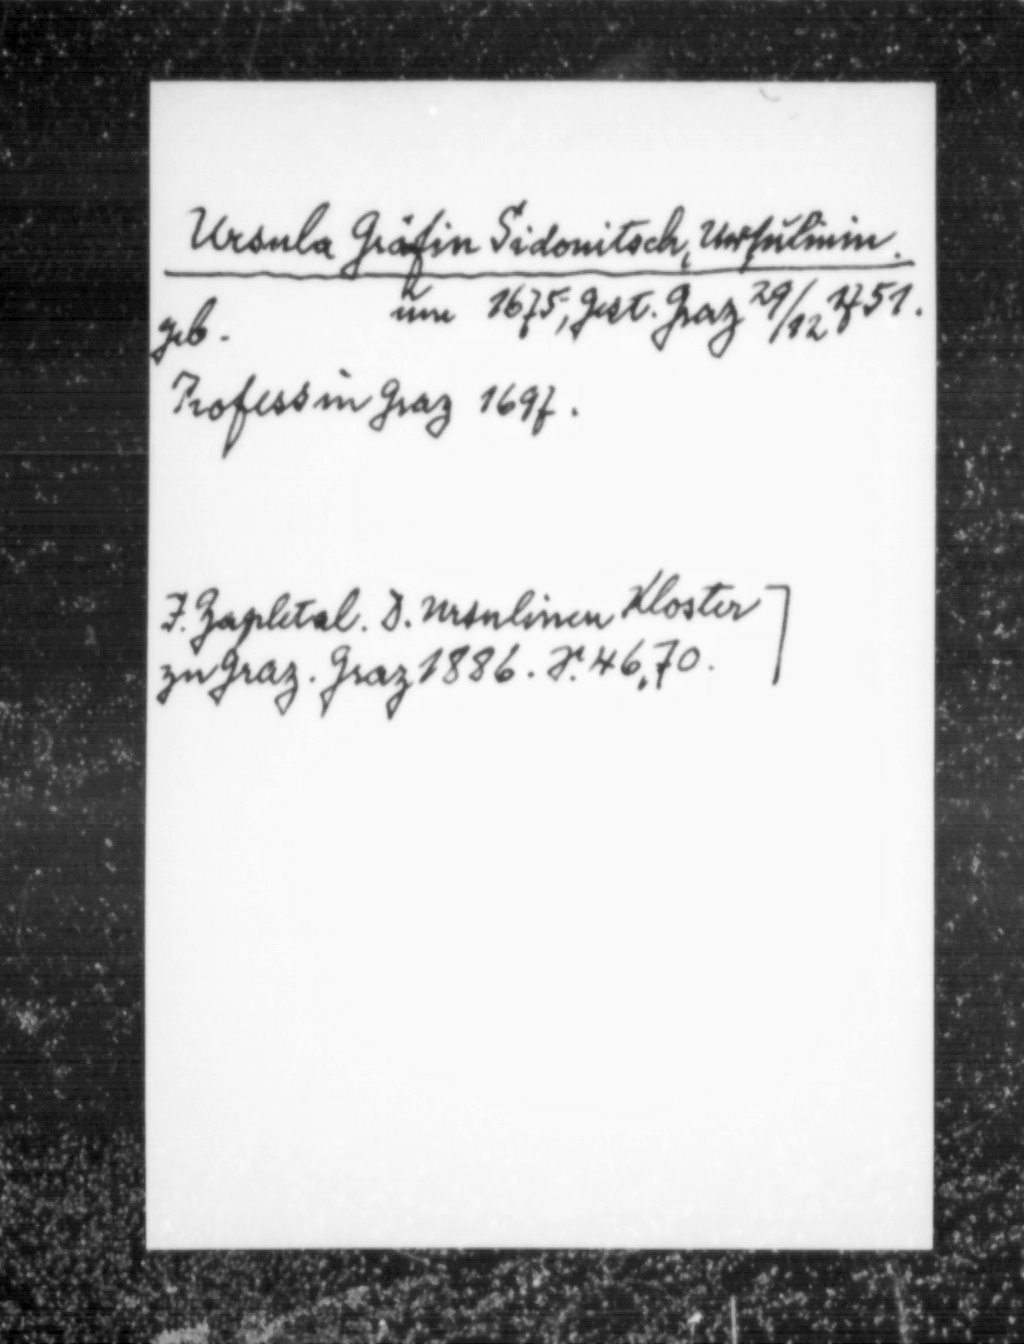 Ursula Gräfin Sidonitsch, Ursulinin.
geb. um 1675, gest. Graz 29/12 1751.
Profess in Graz 1697.
F. Zapletal. D. Ursulinen Kloster
zu Graz. Graz 1886. S. 46, 70.